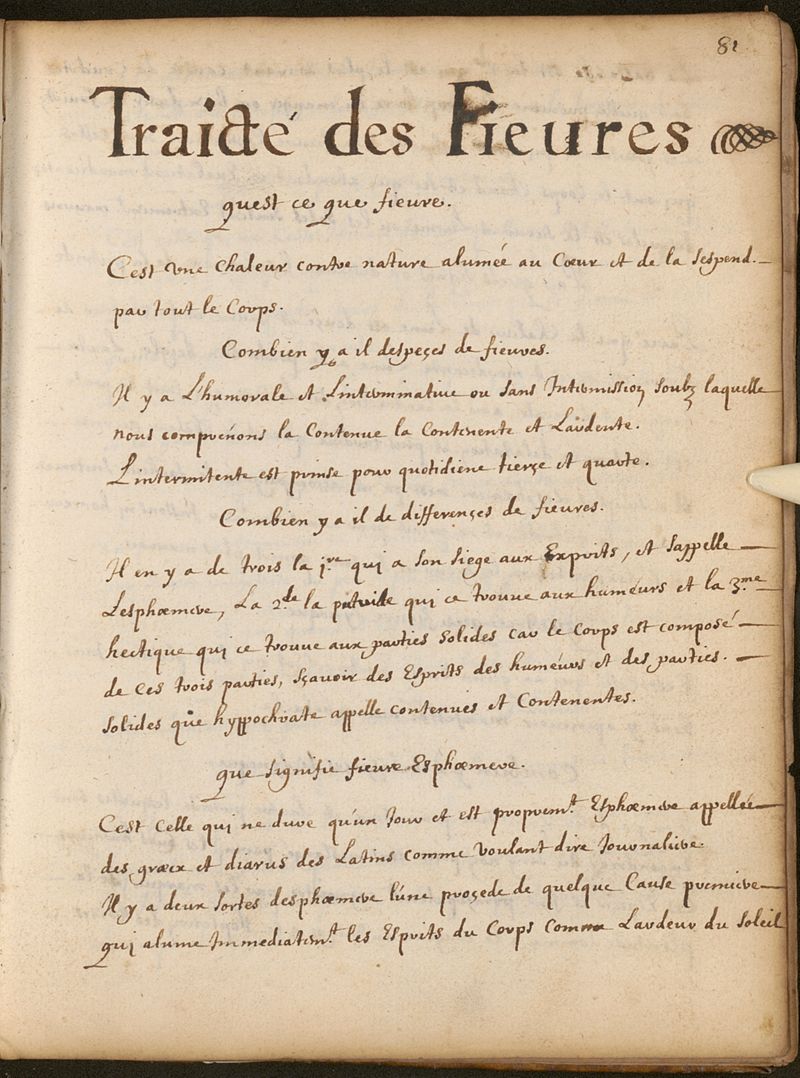 81
Traicté des Fieures
quest ce que fieure.
Cest vne chaleur contre nature alumeé au Cœur et de la sespend.
par tout le Corps.
Combien y a il despeçes de fieures.
Il y a L'humorale et Linterminatiue ou sans Intermission soubz laquelle
nous comprenons la Contenue la Continente et Lardente.
L'intermitente est prinse pour quotidiene tierçe et quarte.
Combien y a il de differençes de fieures.
Il en y a de trois la j.re qui a son siege aux Exprits, et sappelle
Lesphœmere, La 2.de la putride qui ce trouue aux huméurs et la 3.me
hectique qui ce trouue aux parties solides car le Corps est composé
de ces trois parties, sçauoir des Esprits des huméurs et des parties.
solides que hyppochrate appelle contenues et Contenentes.
que signifie fieure Esphœmere.
Cest Celle qui ne dure qu'un Jour et est proprem.t Esphœmere appelleé
des græcx et diarus des Latins comme voulant dire Journaliere.
Il y a deux sortes desphœmere lúne proçede de quelque Cause premiere
qui alume Immediatem.t les Esprits du Corps comme Lardeur du soleil